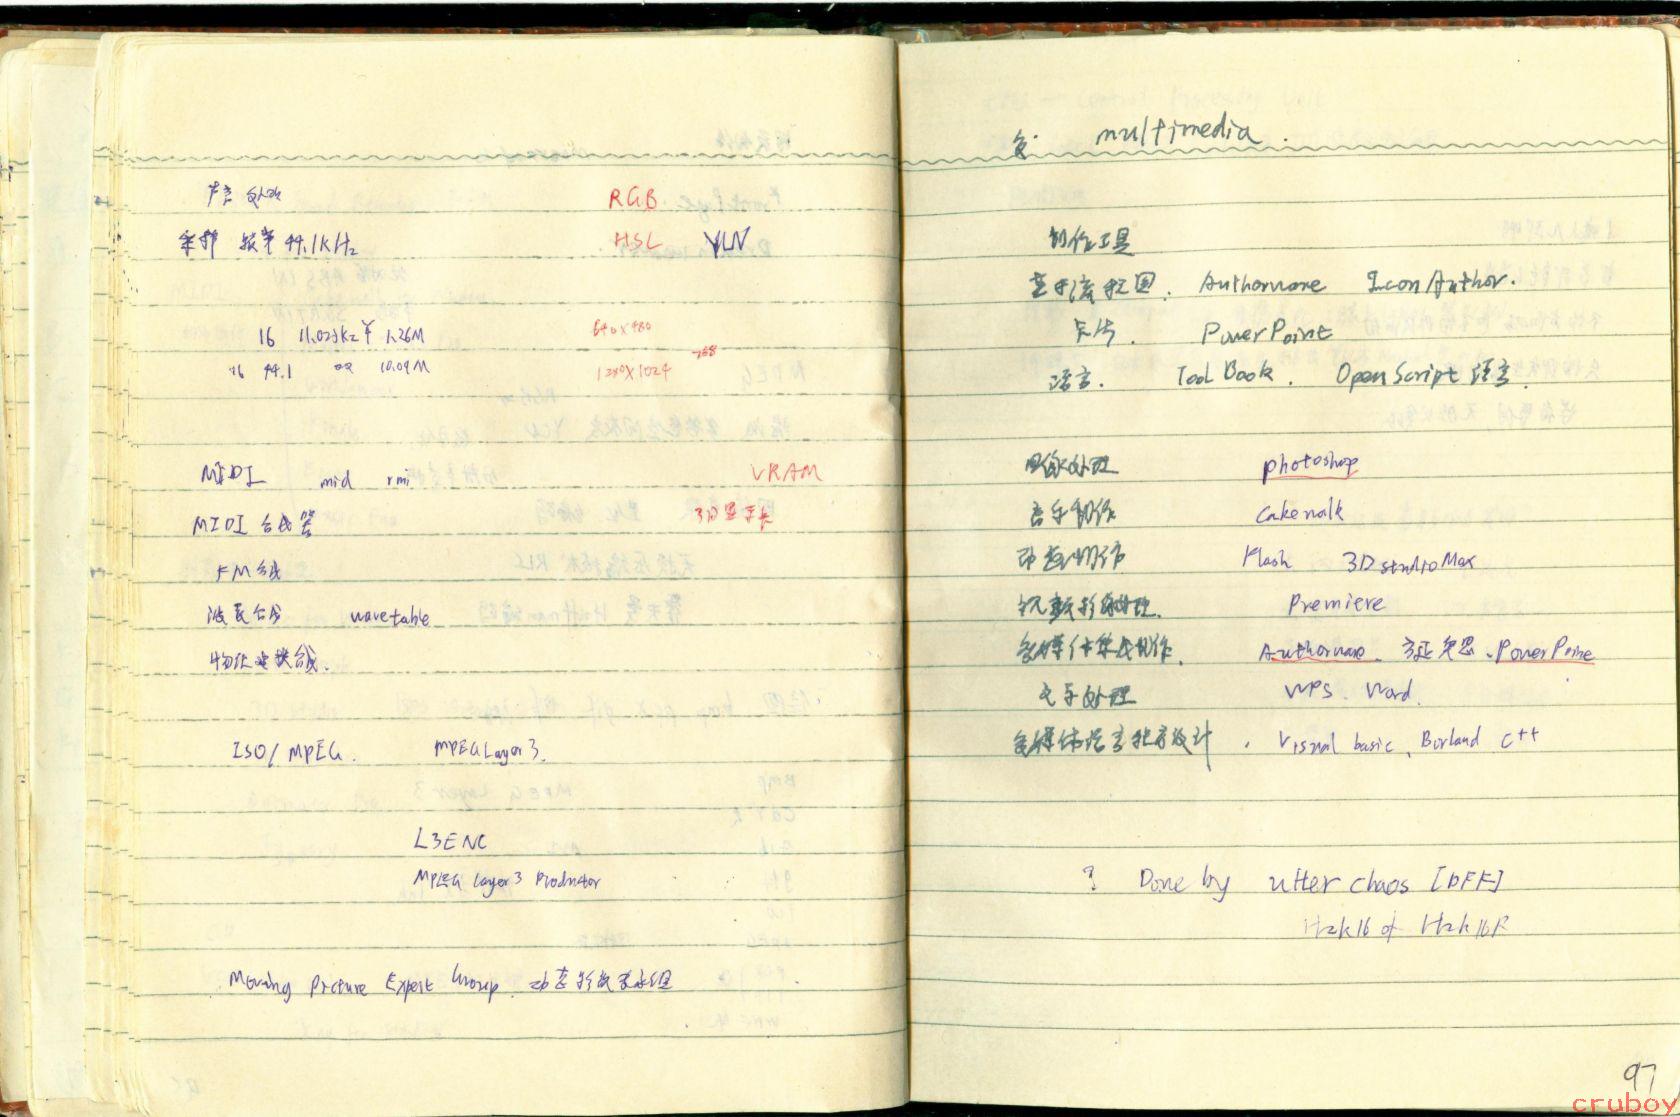 声音处理 RGB
采样 频率 44.1KHz HSL YUV
16 11.025k 1.26M 640×480
16 44.1 10.09M 1280×1024 768
MIDI mid rmi VRAM
MIDI 合成器 显示卡
FM合成
波表合成 wavetable
物理建模合成.
ISO/MPEG. MPEG Layer 3.
L3ENC
MPEG Layer 3 Productor
Moving Picture Expert Group.
多. multimedia.
制作工具
基于流程图. Authorware IconAuthor.
卡片. PowerPoint
语言. ToolBook. OpenScript 语言.
图像处理 photoshop
音乐制作 cakewalk
动画制作 Flash 3D studio Max
视频影像处理. Premiere
多媒体集成制作. Authorware. 方正奥思. PowerPoint
文字处理 WPS. Word.
多媒体语言程序设计. Visual basic, Borland C++
? Done by utter chaos [DFF]
Hzk16 of Hzk16F
97
cruboy